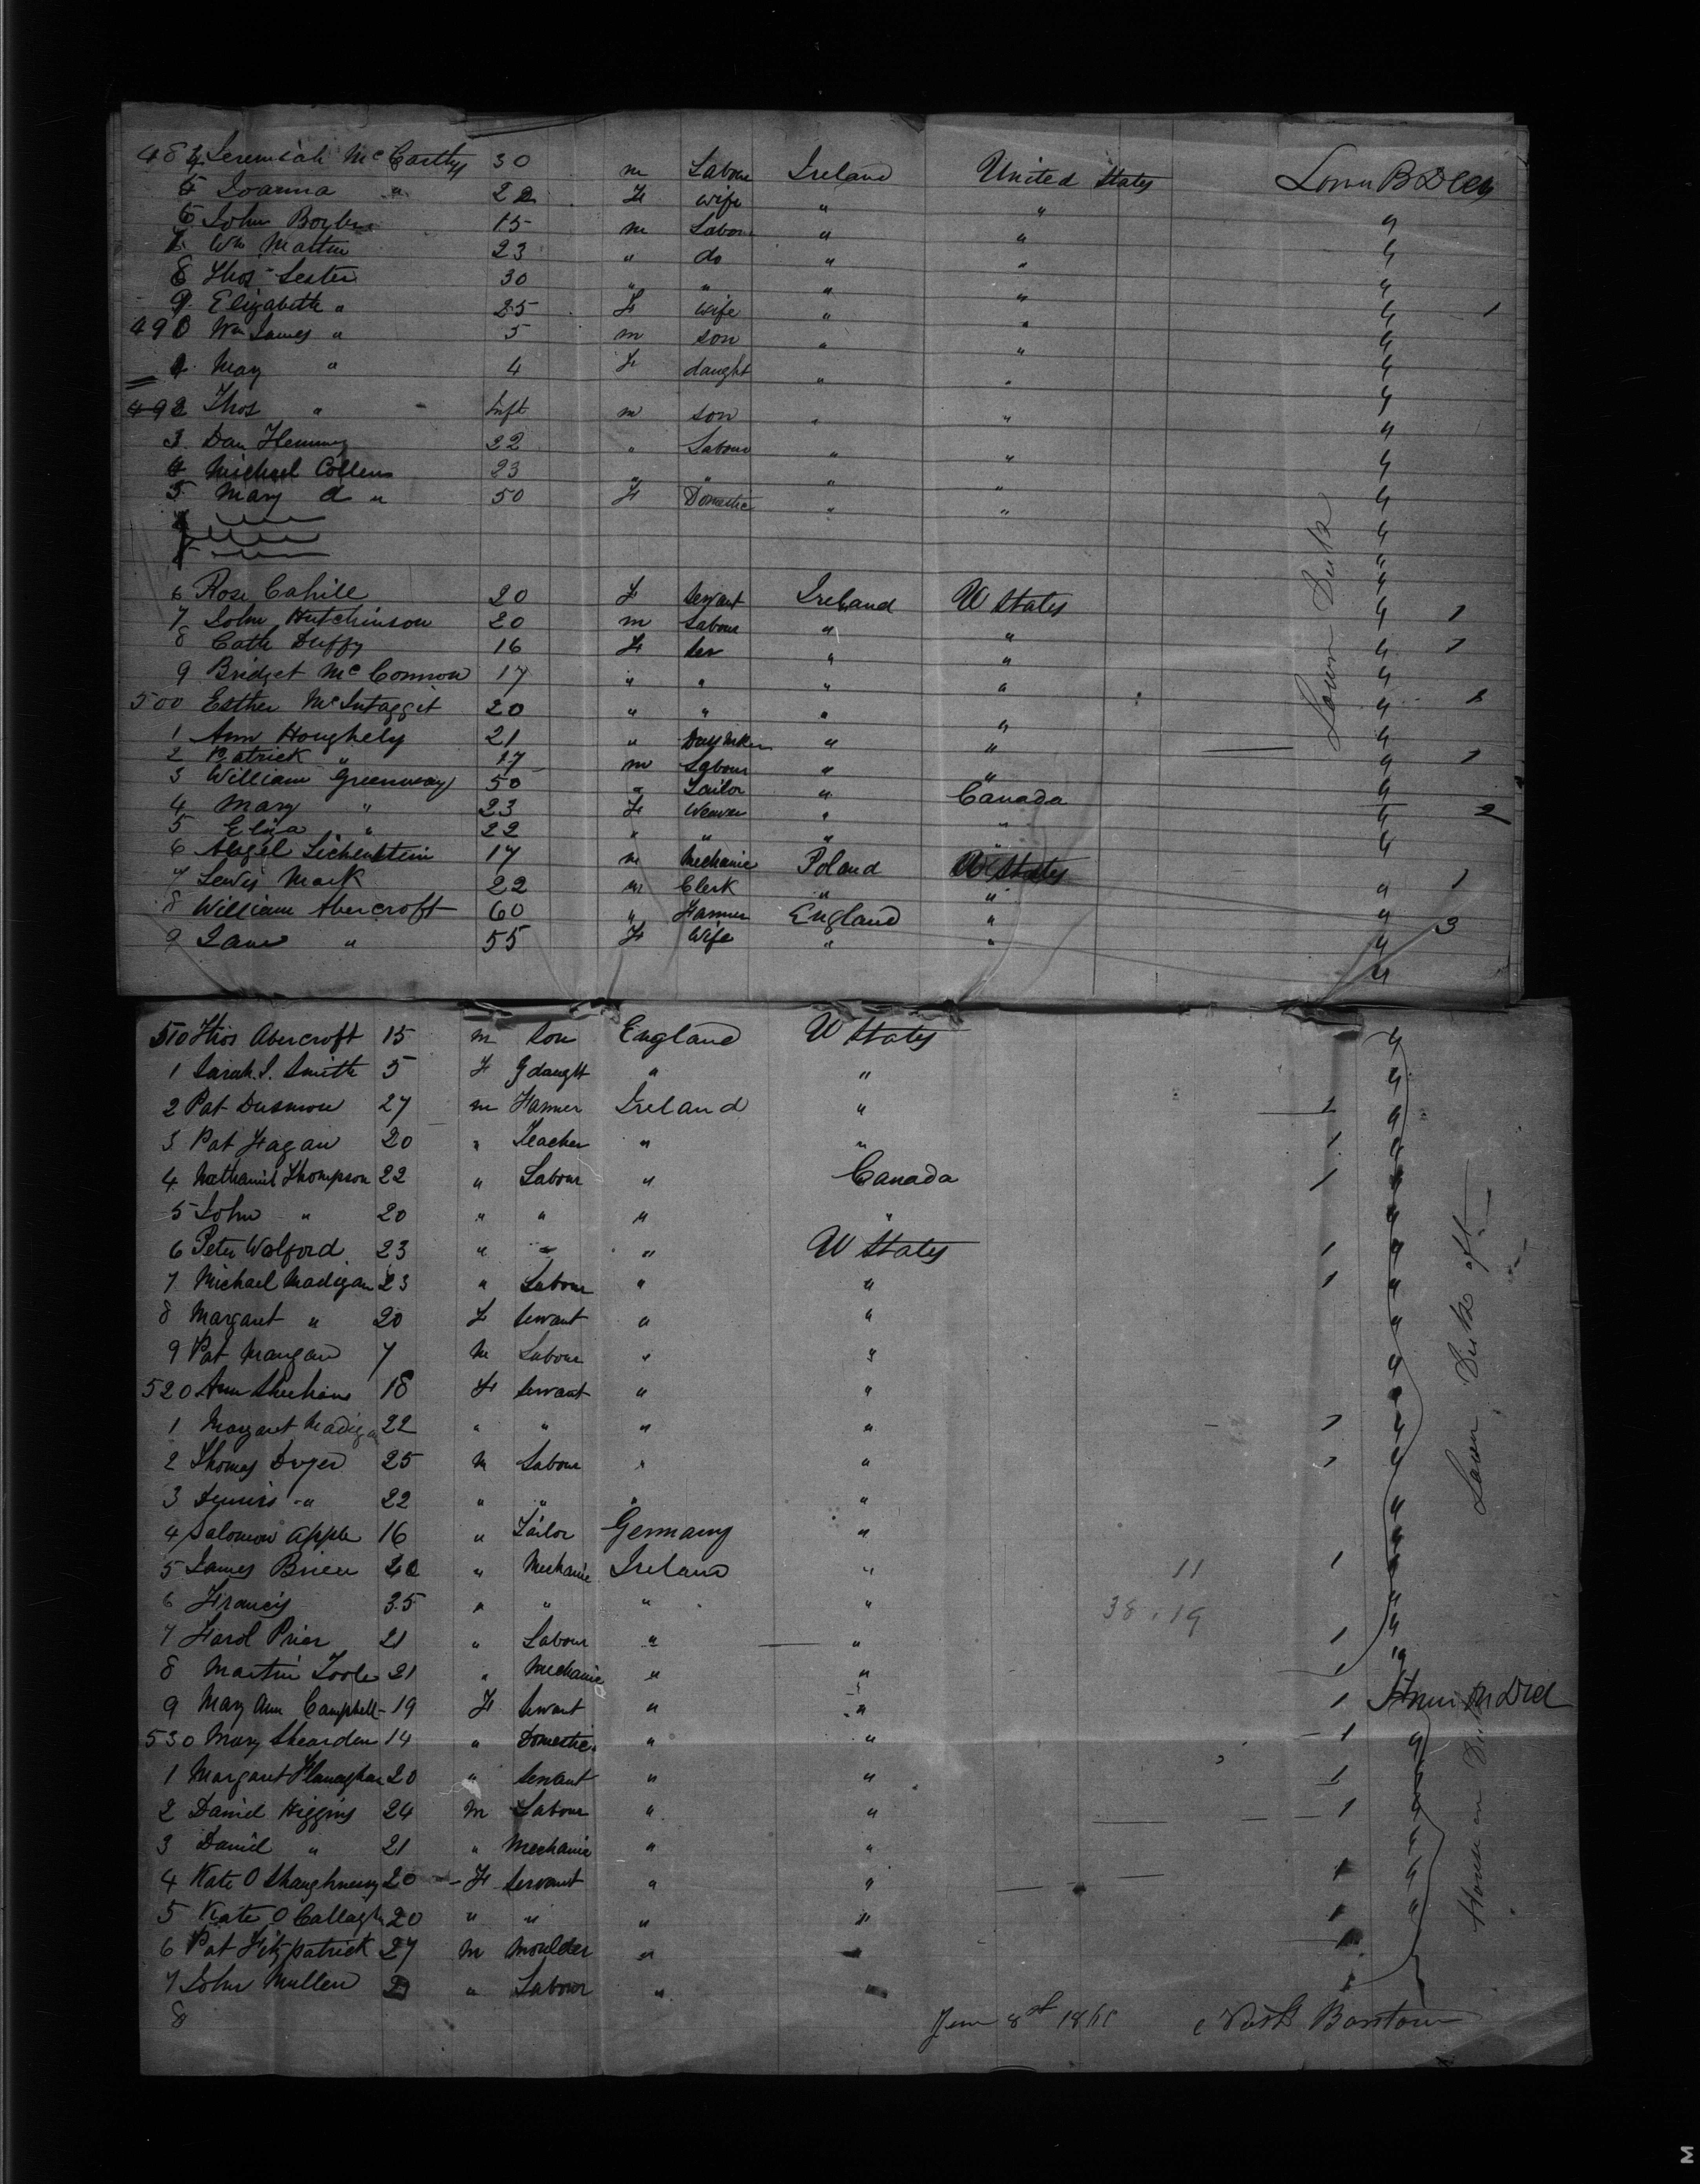 484 Jeremiah McCarthy 30 m Labour Ireland United States Lower B Deck
5 Joanna " 22 F wife " " "
6 John Boyle 15 m Labour " " "
7 Wm Martin 23 " do " " "
8 Thos Lester 30 " " " " "
9 Elizabeth " 25 F wife " " " 1
490 Wm James " 5 m son " " "
1 May " 4 F daught " " "
492 Thos " Inft m son " " "
3 Dan Flemming 22 " Labour " " "
4 Michael Collens 23 " " " " "
5 Mary a " 50 F Domestic " " "
6 Rose Cahill 20 F Servant Ireland U States "
7 John Hutchinson 20 m Labour " " " 1
8 Cath Duffy 16 F Ser " " " 1
9 Bridget McConnow 17 " " " " "
500 Esther McIntaggit 20 " " " " " 1
1 Ann Houghely 21 " " " "
2 Patrick " 17 m Labour " " " 1
3 William Greenway 50 " Tailor " Canada "
4 Mary " 23 F Weaver " " " 2
5 Eliza " 22 " " " " "
6 Lichenstein 17 m Mechanic Poland U States 1
7 Lewis Mark 22 m Clerk " " "
8 William Abercroft 60 " Farmer England " " 3
9 Jane " 55 F Wife " " "
Lower Deck
510 Thos Abercroft 15 m Son England U States "
1 Sarah J. Smith 5 F G daught " " "
2 Pat Dusmow 27 m Farmer Ireland " 1 "
3 Pat Fagan 20 " Teacher " " 1 "
4 Nathaniel Thompson 22 " Labour " Canada 1 "
5 John " 20 " " " " "
6 Peter Walford 23 " " " U States 1 "
7 Michael Madigan 23 " Labour " " 1 "
8 Margaret " 20 F Servant " " "
9 Pat Mangan 7 M Labour " " "
520 Ann Sheehan 18 F Servant " " "
1 Margaret Madiga 22 " " " " 1 "
2 Thomas Dwyer 25 M Labour " " 1 "
3 Dennis " 22 " " " " "
4 Salomon Apple 16 " Tailor Germany " "
5 James Brien 40 " Mechanic Ireland " 11 1 "
6 Francis 35 " " " " 38.19 "
7 Prior 21 " Labour " " 1 "
8 Martin Toole 21 " Mechanic " " 1 "
9 Mary Ann Campbell 19 F Servant " " 1
530 Mary Shearden 14 " Domestic " " 1 "
1 Margaret Flanaghan 20 " Servant " " 1 "
2 Daniel Higgins 24 M Labour " " 1 "
3 Daniel " 21 " Mechanic " " "
4 Kate O Shaughnessy 20 F Servant " " 1 "
5 Kate O Callagh 20 " " " " 1 "
6 Pat Fitzpatrick 27 M Moulder " " 1
7 John Mullen " Labour " " 1
8
Lower Deck aft